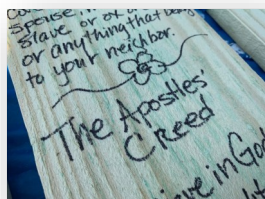 spouse,
slave, or ox or
or anything that belong
to your neighbor.
The Apostles'
Creed
in God